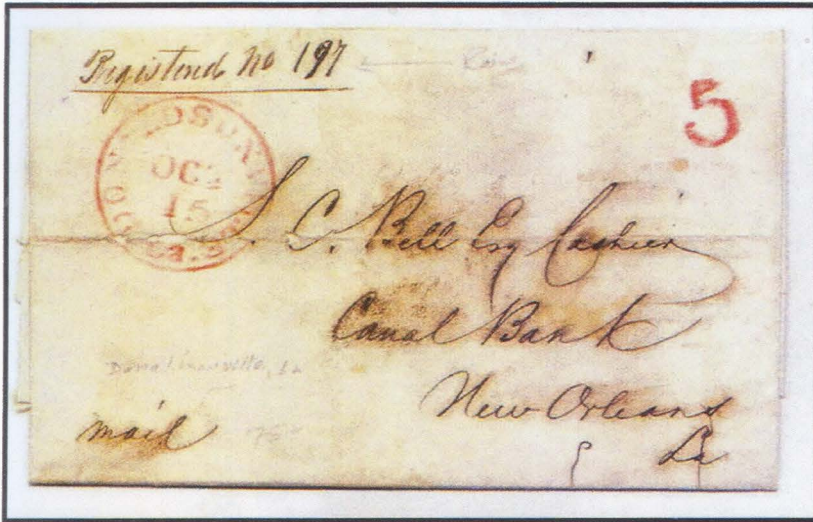 Registered No 197
5
DONALDSONVILLE
OCT
15
La.
S. C. Bell Esq Cashier
Canal Bank
New Orleans
La
Donaldsonville, La
mail